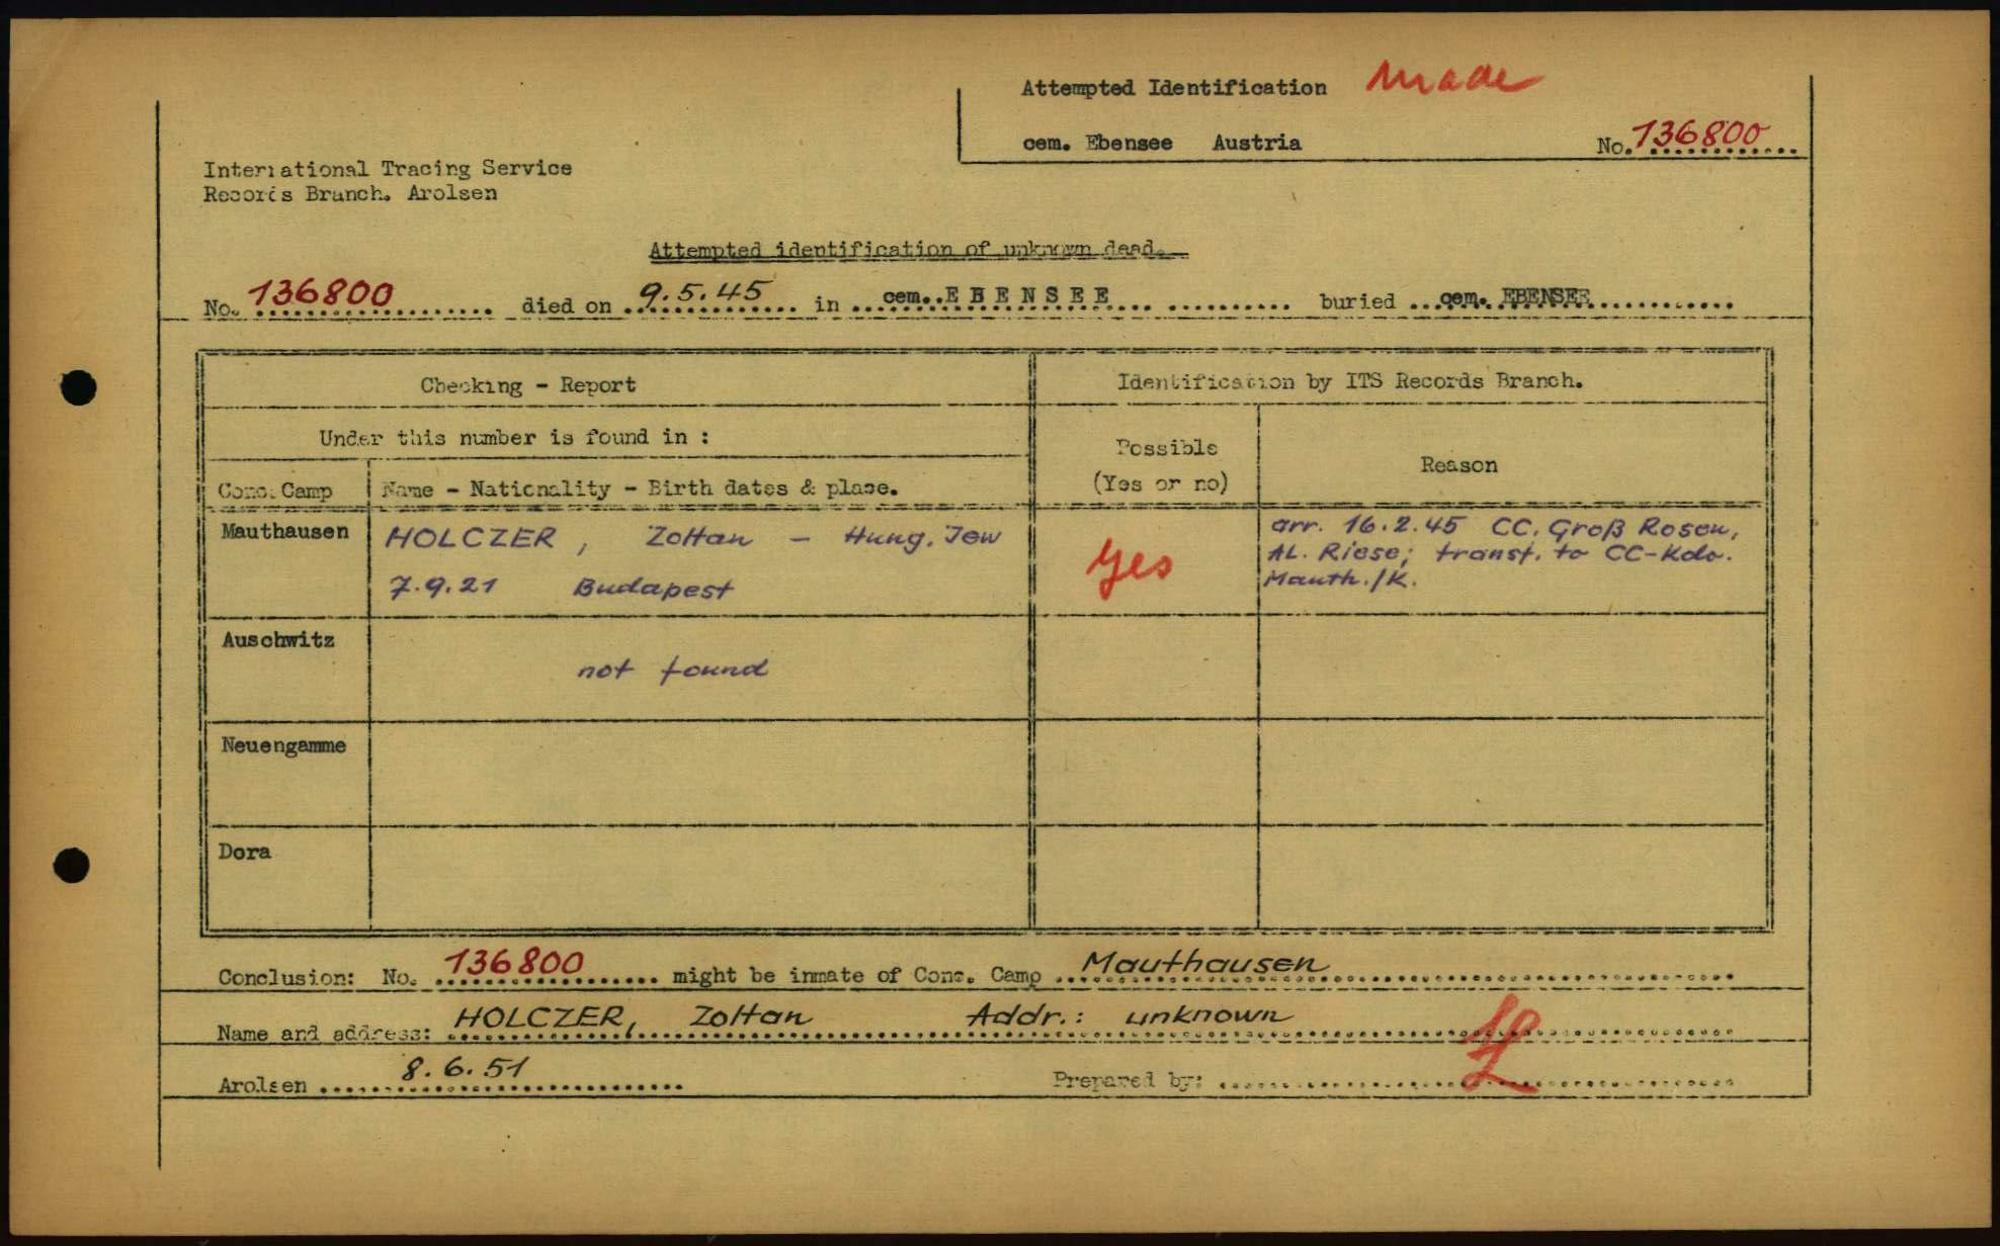 Attempted Identification made
cem. Ebensee Austria No. 136800
International Tracing Service
Records Branch. Arolsen
Attempted identification of unknown dead.
No. 136800 died on 9.5.45 in cem. EBENSEE buried cem. EBENSEE
Checking - Report
Identification by ITS Records Branch.
Under this number is found in :
Possible
(Yes or no)
Reason
Conc. Camp
Name - Nationality - Birth dates & place.
Mauthausen
HOLCZER, Zoltan - Hung. Jew
7.9.21 Budapest
yes
arr. 16.2.45 CC. Groß Rosen,
AL. Riese; transf. to CC-Kdo.
Mauth./K.
Auschwitz
not found
Neuengamme
Dora
Conclusion: No. 136800 might be inmate of Conc. Camp Mauthausen
Name and address: HOLCZER, Zoltan Addr.: unknown
Arolsen 8.6.51 Prepared by: